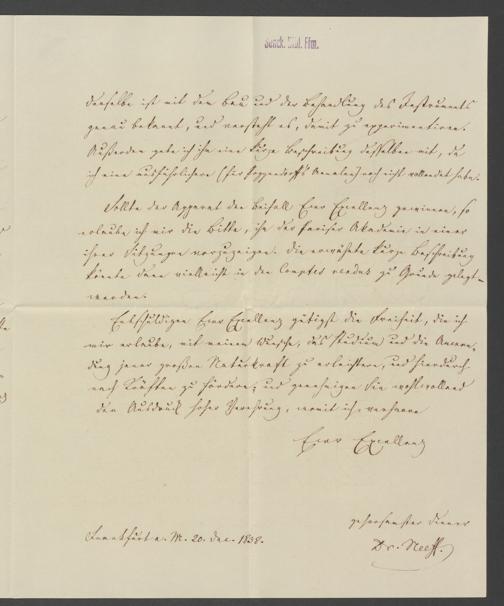 Senck. Bibl. Ffm.
derselbe ist mit dem Bau und der Behandlung des Instruments
genau bekannt, und versteht es, damit zu experimentiren.
Außerdem gebe ich ihm eine kurze Beschreibung desselben mit, da
ich eine ausführlichere (für Poggendorff's Annalen) noch nicht vollendet habe.
Sollte der Apparat den Beifall Euer Excellenz gewinnen, so
erlaube ich mir die Bitte, ihn der Pariser Akademie in einer
ihrer Sitzungen vorzuzeigen. Die erwähnte kurze Beschreibung
könnte dann vielleicht in den Comptes rendus zu Grunde gelegt
werden.
Entschuldigen Euer Excellenz gütigst die Freiheit, die ich
mir erlaube, mit meinem Wunsche, das Studium und die Anwen-
dung jener großen Naturkraft zu erleichtern, und hierdurch
nach Kräften zu fördern, und genehmigen Sie wohlwollend
den Ausdruck hoher Verehrung, womit ich verharre
Euer Excellenz
gehorsamster Diener
Dr. Neeff.
Frankfurt a. M. 20. Dec. 1838.